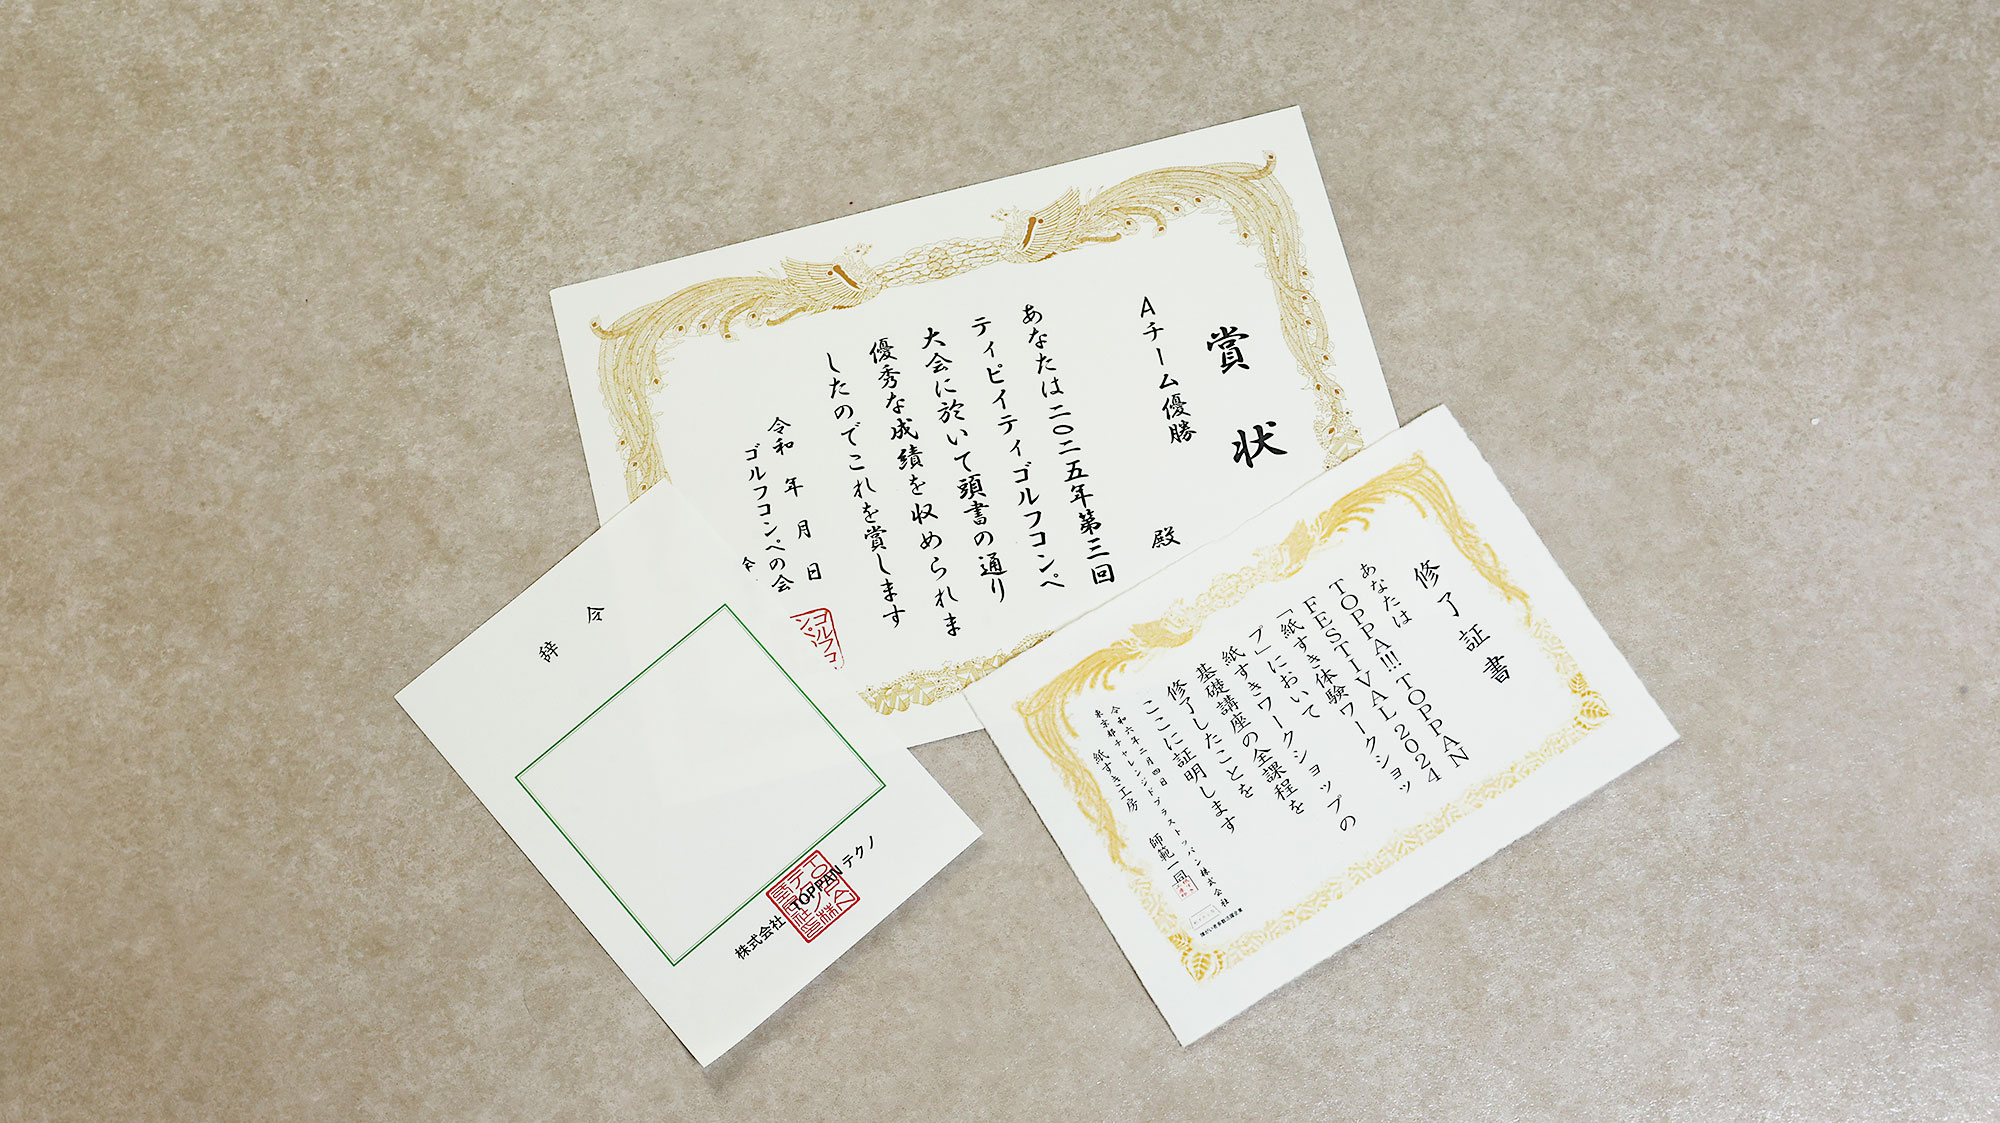 賞状
Aチーム優勝
殿
あなたは二〇二五年第三回
ティピイティゴルフコンペ
大会に於いて頭書の通り
優秀な成績を収められま
したのでこれを賞します
令和 年 月 日
ゴルフコンペの会
ゴルフコ
ンペ
修了証書
あなたは
TOPPA!!! TOPPAN
FESTIVAL 2024
「紙すき体験ワークショッ
プ」において
紙すきワークショップの
基礎講座の全課程を
修了したことを
ここに証明します
令和六年二月四日
東京都チャレンジドプラストッパン株式会社
紙すき工房 師範一同
障がい者多数活躍企業
辞令
株式会社 TOPPANテクノ